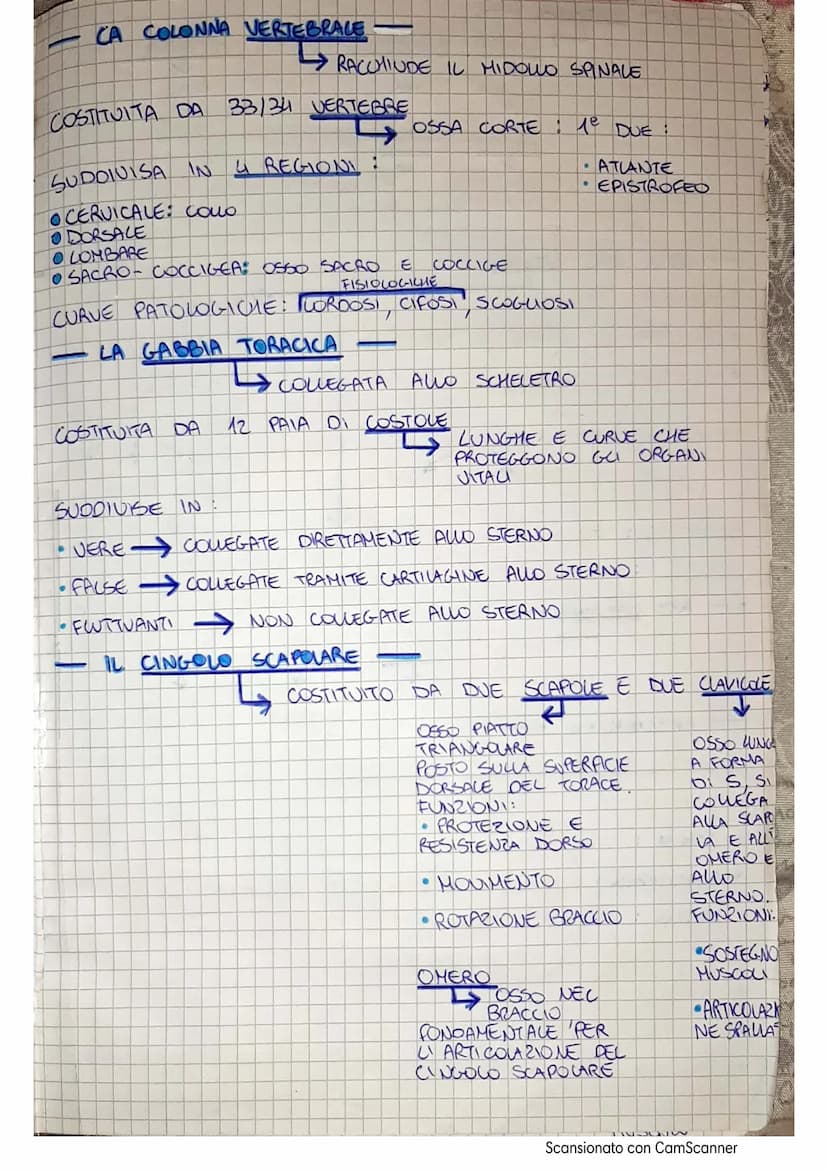 — LA COLONNA VERTEBRALE —
↳ RACCHIUDE IL MIDOLLO SPINALE
COSTITUITA DA 33/34 VERTEBRE
↳ OSSA CORTE : 1e DUE :
• ATLANTE
• EPISTROFEO
SUDDIVISA IN 4 REGIONI :
• CERVICALE: COLLO
• DORSALE
• LOMBARE
• SACRO-COCCIGEA: OSSO SACRO E COCCIGE
FISIOLOGICHE
CURVE PATOLOGICHE: LORDOSI, CIFOSI, SCOGLIOSI
— LA GABBIA TORACICA —
↳ COLLEGATA ALLO SCHELETRO
COSTITUITA DA 12 PAIA DI COSTOLE
↳ LUNGHE E CURVE CHE
PROTEGGONO GLI ORGANI
VITALI
SUDDIVISE IN :
• VERE → COLLEGATE DIRETTAMENTE ALLO STERNO
• FALSE → COLLEGATE TRAMITE CARTILAGINE ALLO STERNO
• FLUTTUANTI → NON COLLEGATE ALLO STERNO
— IL CINGOLO SCAPOLARE —
↳ COSTITUITO DA DUE SCAPOLE E DUE CLAVICOLE
OSSO PIATTO
TRIANGOLARE
POSTO SULLA SUPERFICIE
DORSALE DEL TORACE.
FUNZIONI:
• PROTEZIONE E
RESISTENZA DORSO
• MOVIMENTO
• ROTAZIONE BRACCIO
OSSO LUNG
A FORMA
DI S, SI
COLLEGA
ALLA SCAP
LA E ALL'
OMERO E
ALLO
STERNO.
FUNZIONI:
• SOSTEGNO
MUSCOLI
• ARTICOLAZI
NE SPALLA
OMERO
↳ OSSO NEL
BRACCIO
FONDAMENTALE PER
L'ARTICOLAZIONE DEL
CINGOLO SCAPOLARE
Scansionato con CamScanner